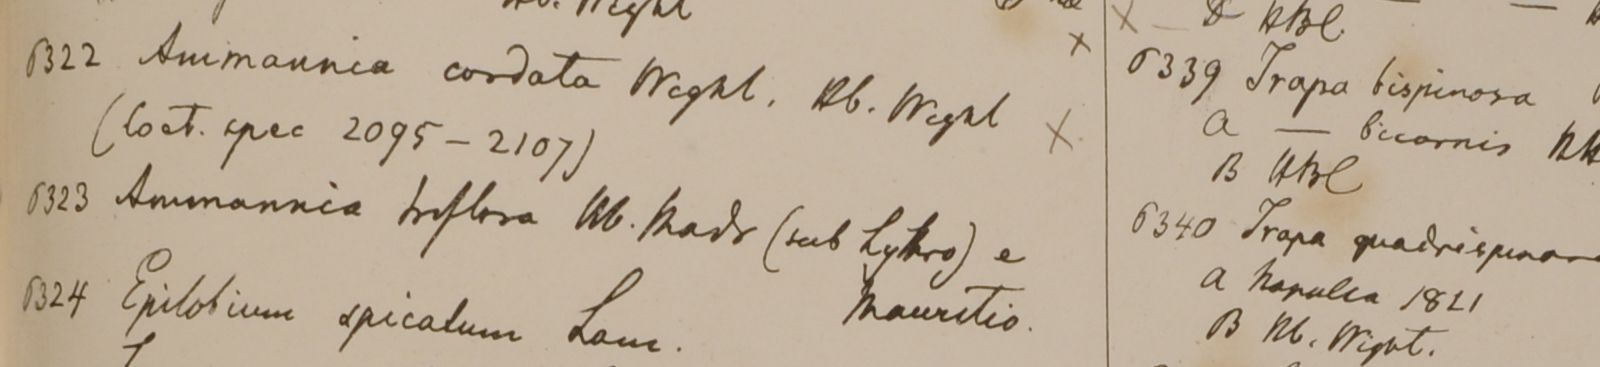 Hb. Wight
6322 Ammannia cordata Wight. Hb. Wight
(Coct. spec 2095 – 2107)
6323 Ammannia triflora Hb. Madr (sub Lythro) e
Mauritio.
6324 Epilobium spicatum Lam.
B HBC.
6339 Trapa bispinosa
a — bicornis
B HBC
6340 Trapa quadrispinosa
a Napalia 1821
B Hb. Wight.